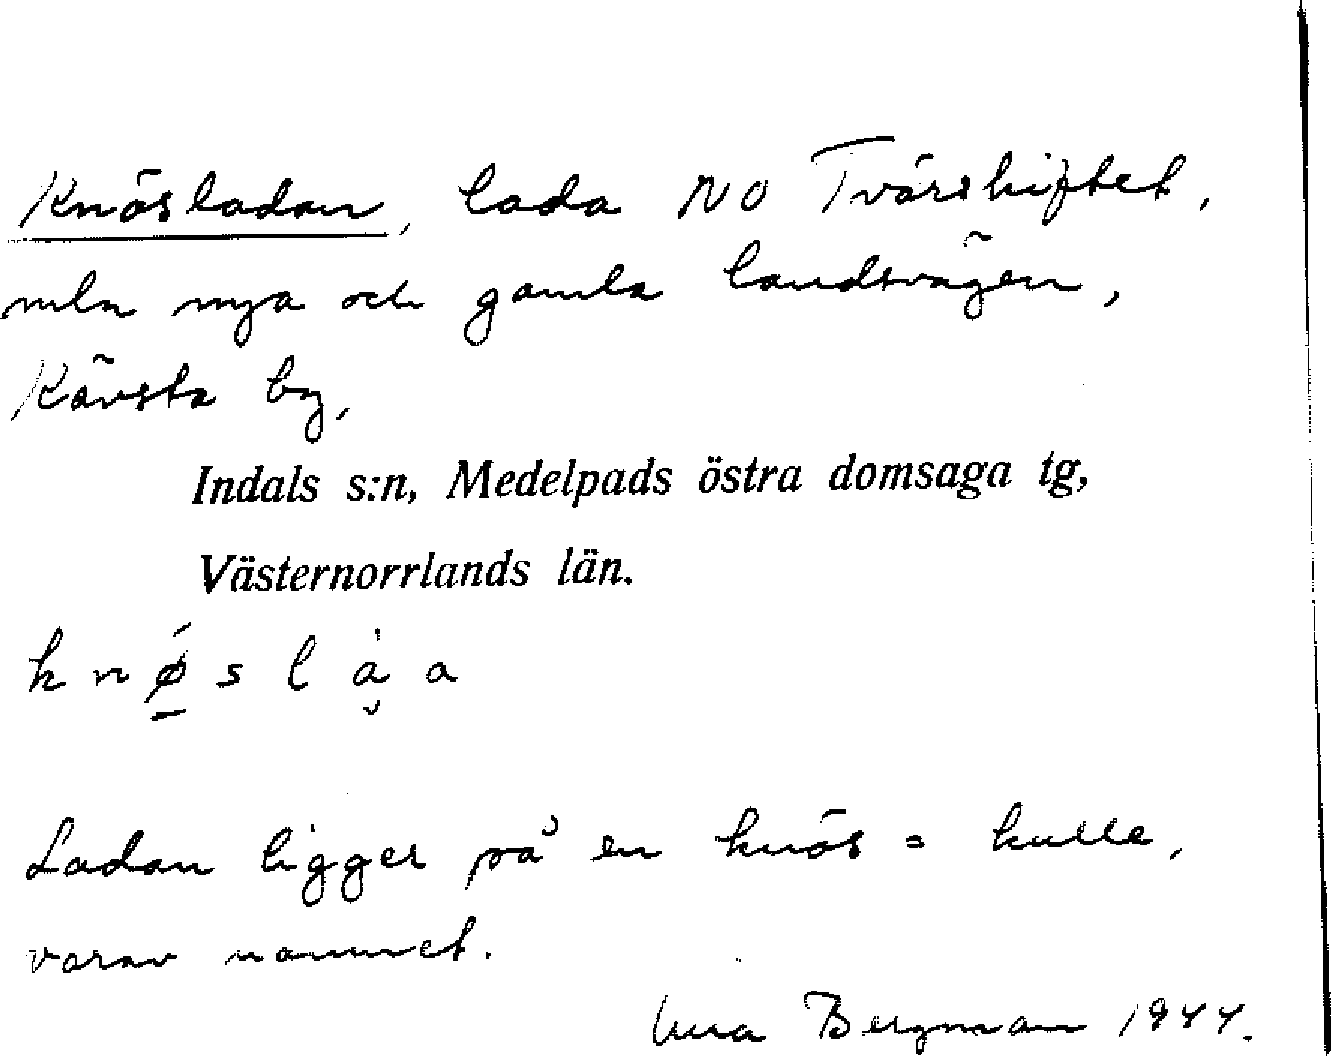 Knösladan, lada NO Tvärskiftet,
mln nya och gamla landsvägen,
Kävsta by,
Indals s:n, Medelpads östra domsaga tg,
Västernorrlands län.
k n ǿ̱ s l ȧ̮ a
Ladan ligger på en knös = kulle,
varav namnet.
Bergman 1944.